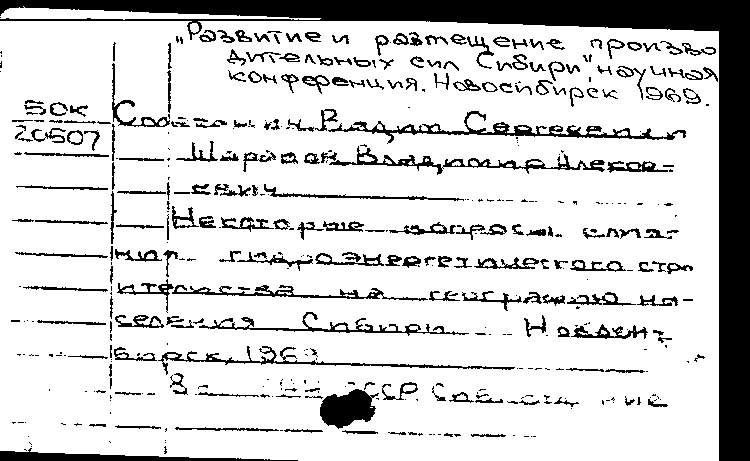 „Развитие и размещение произво
дительных сил Сибири" научная
конференция. Новосибирск 1969.
БОК
20507
Вадим Сергеевич и
Шарапов Владимир Алексе-
евич
Некоторые вопросы влия-
ния гидроэнергетического стро
ительства на географию на-
селения Сибири Новоси-
бирск, 1969
8с СССР. Сиб. отд-ние